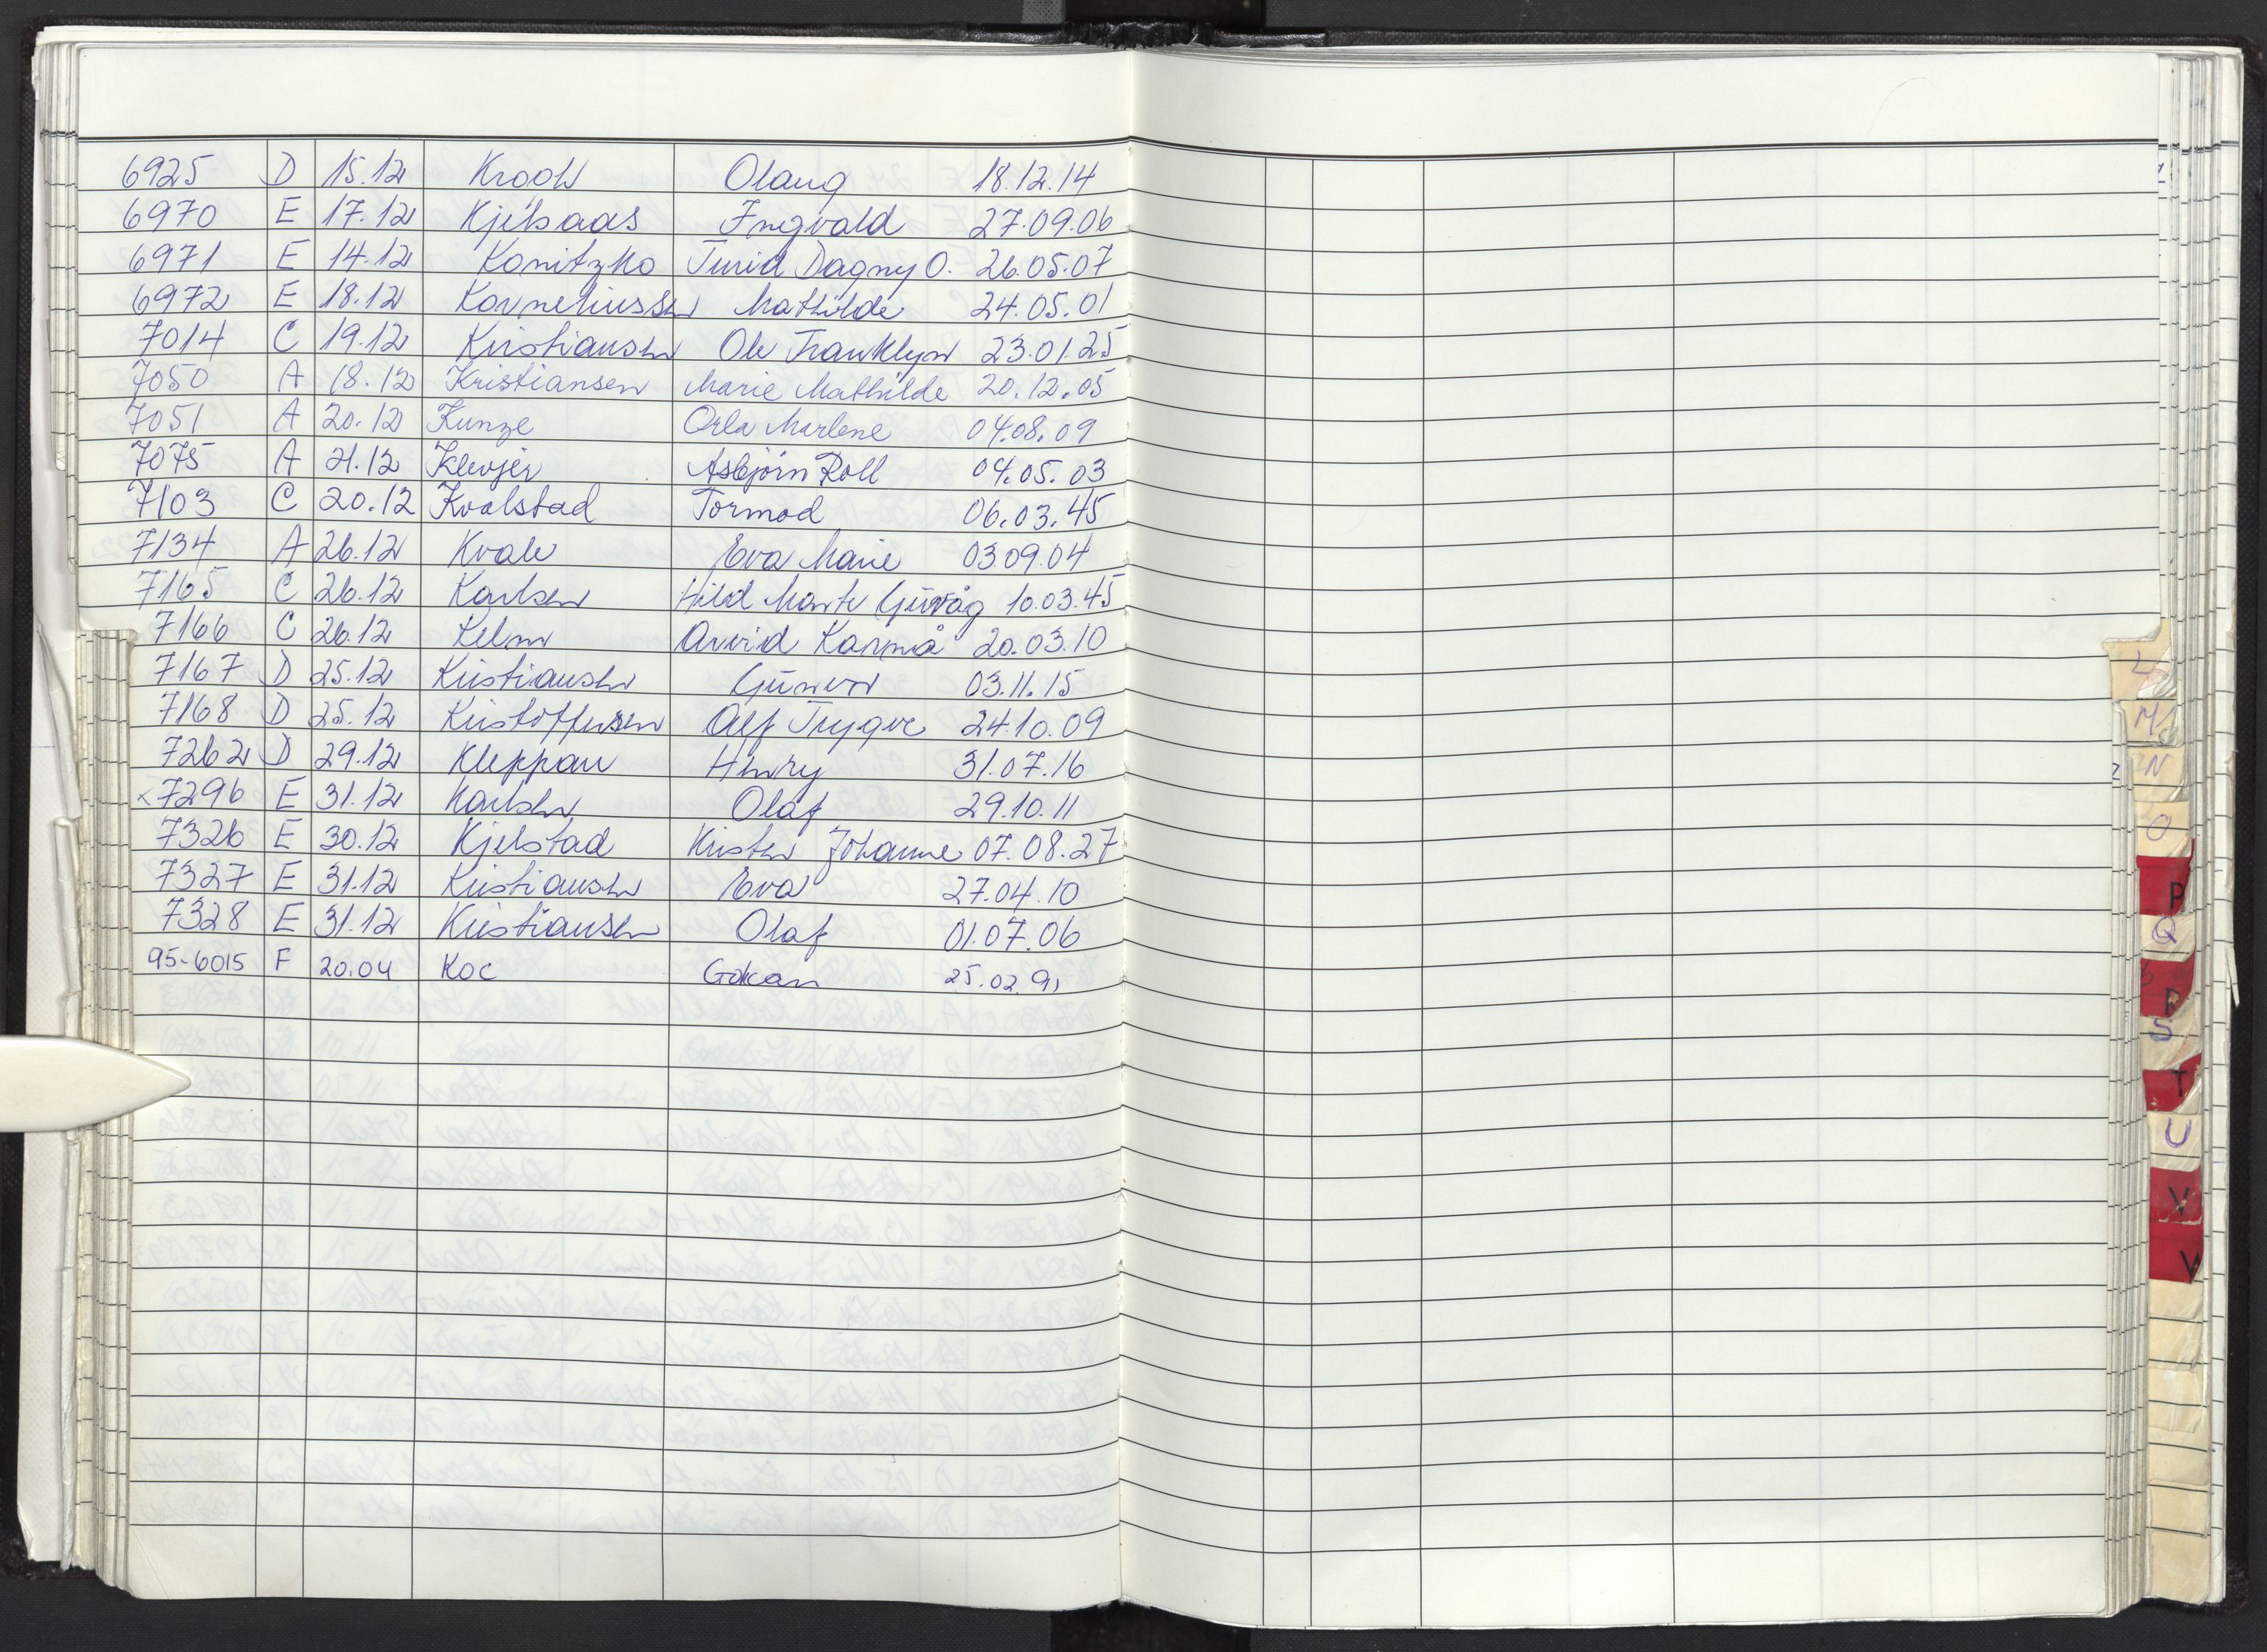 6925 D 15.12 Krogh Olaug 18.12.14
6970 E 17.12 Kjelsaas Ingvald 27.09.06
6971 E 14.12 Konitzko Turid Dagny O. 26.05.07
6972 E 18.12 Korneliussen Mathilde 24.05.01
7014 C 19.12 Kristiansen Ole Franklyn 23.01.25
7050 A 18.12 Kristiansen Marie Mathilde 20.12.05
7051 A 20.12 Kunze Orla Marlene 04.08.09
7075 A 21.12 Klevjer Asbjörn Roll 04.05.03
7103 C 20.12 Kvalstad Tormod 06.03.45
7134 A 26.12 Kvale Eva Marie 03.09.04
7165 C 26.12 Karlsen Hild Marte 10.03.45
7166 C 26.12 Kelm Arvid 20.03.10
7167 D 25.12 Kristiansen Gunvor 03.11.15
7168 D 25.12 Kristoffersen Alf Trygve 24.10.09
7262 D 29.12 Kleppan Henry 31.07.16
x7296 E 31.12 Karlsen Olaf 29.10.11
7326 E 30.12 Kjelstad Kirsten Johanne 07.08.27
7327 E 31.12 Kristiansen Eva 27.04.10
7328 E 31.12 Kristiansen Olaf 01.07.06
95-6015 F 20.04 Koc Gokan 25.02.91
L
M
N
O
P
Q
R
S
T
U
V